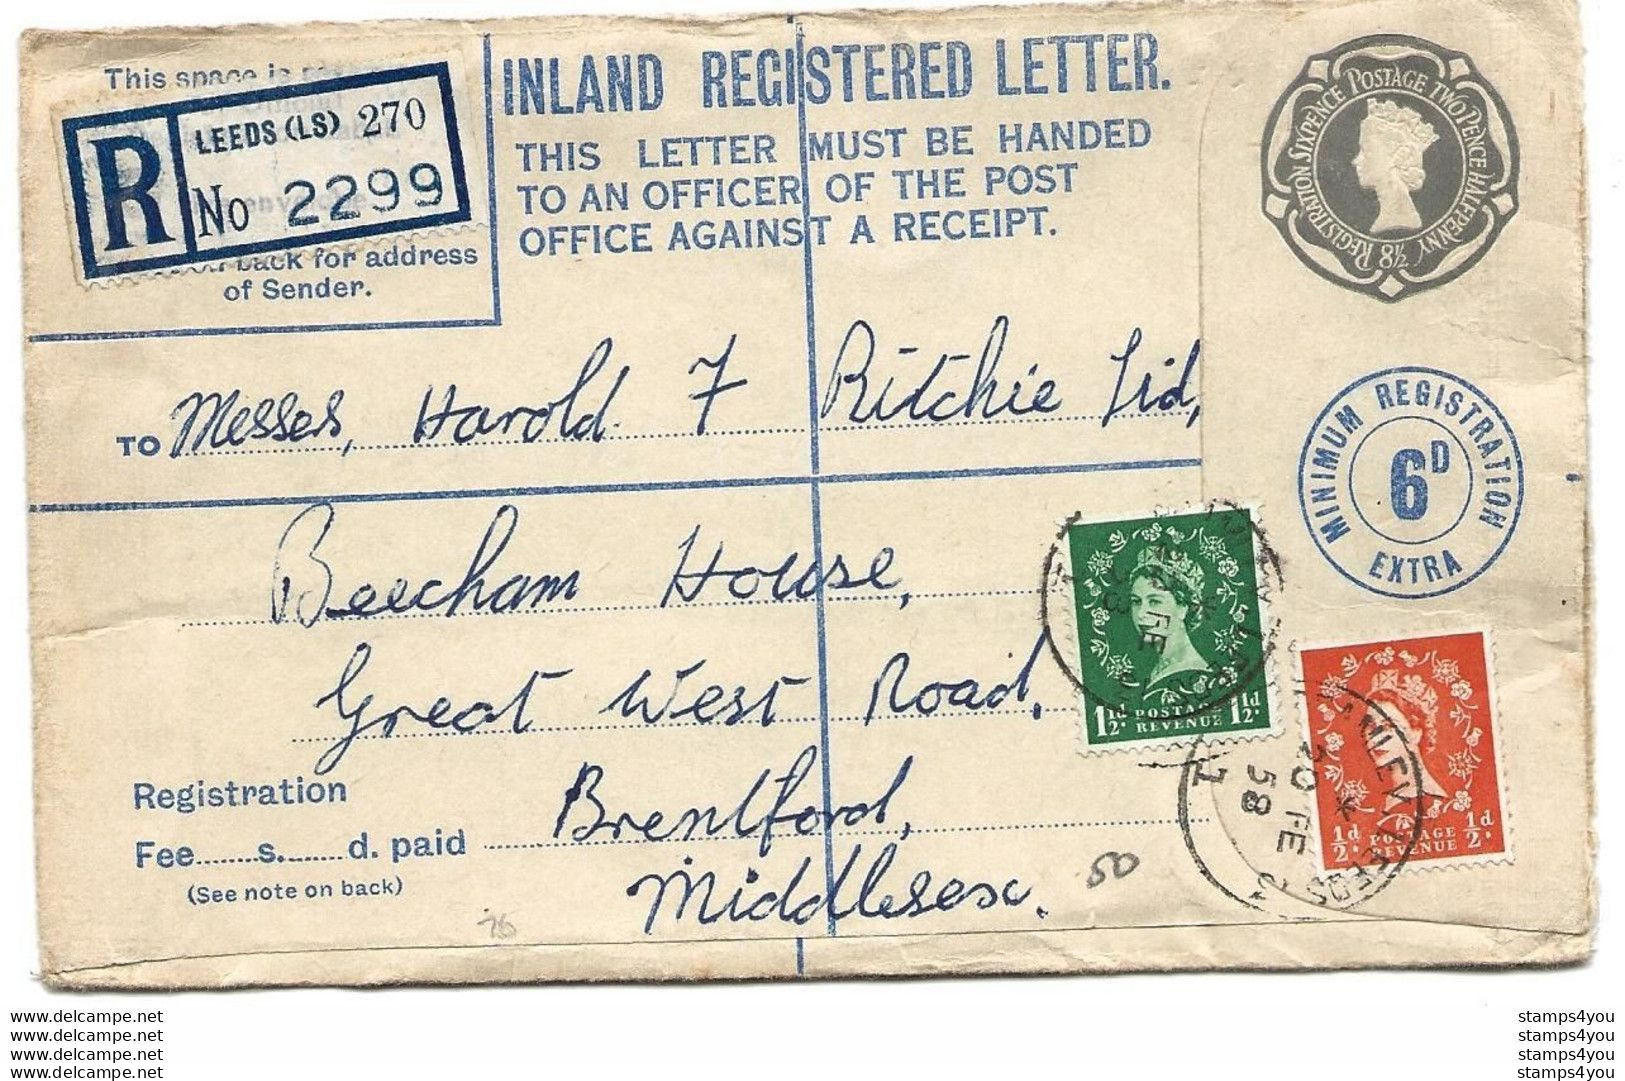 This space is
R LEEDS (LS) 270
No 2299
back for address
of Sender.
INLAND REGISTERED LETTER.
THIS LETTER MUST BE HANDED
TO AN OFFICER OF THE POST
OFFICE AGAINST A RECEIPT.
REGISTRATION SIXPENCE POSTAGE TWO PENCE HALFPENNY 8½
MINIMUM REGISTRATION
6D
EXTRA
TO Messes, Harold F Ritchie Ltd,
Beecham House,
Great West Road,
Brentford,
Middlesex.
Registration
Fee.......s.......d. paid
(See note on back)
1½d. POSTAGE REVENUE 1½d.
½d. POSTAGE REVENUE ½d.
20 FE
58
50
stamps4you.net
stamps4you.net
stamps4you.net
stamps4you.net
stamps4you
stamps4you
stamps4you
stamps4you